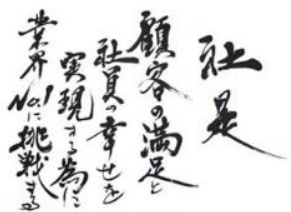 社是
顧客の満足と
社員の幸せを
実現する為に
業界No.1に挑戦する